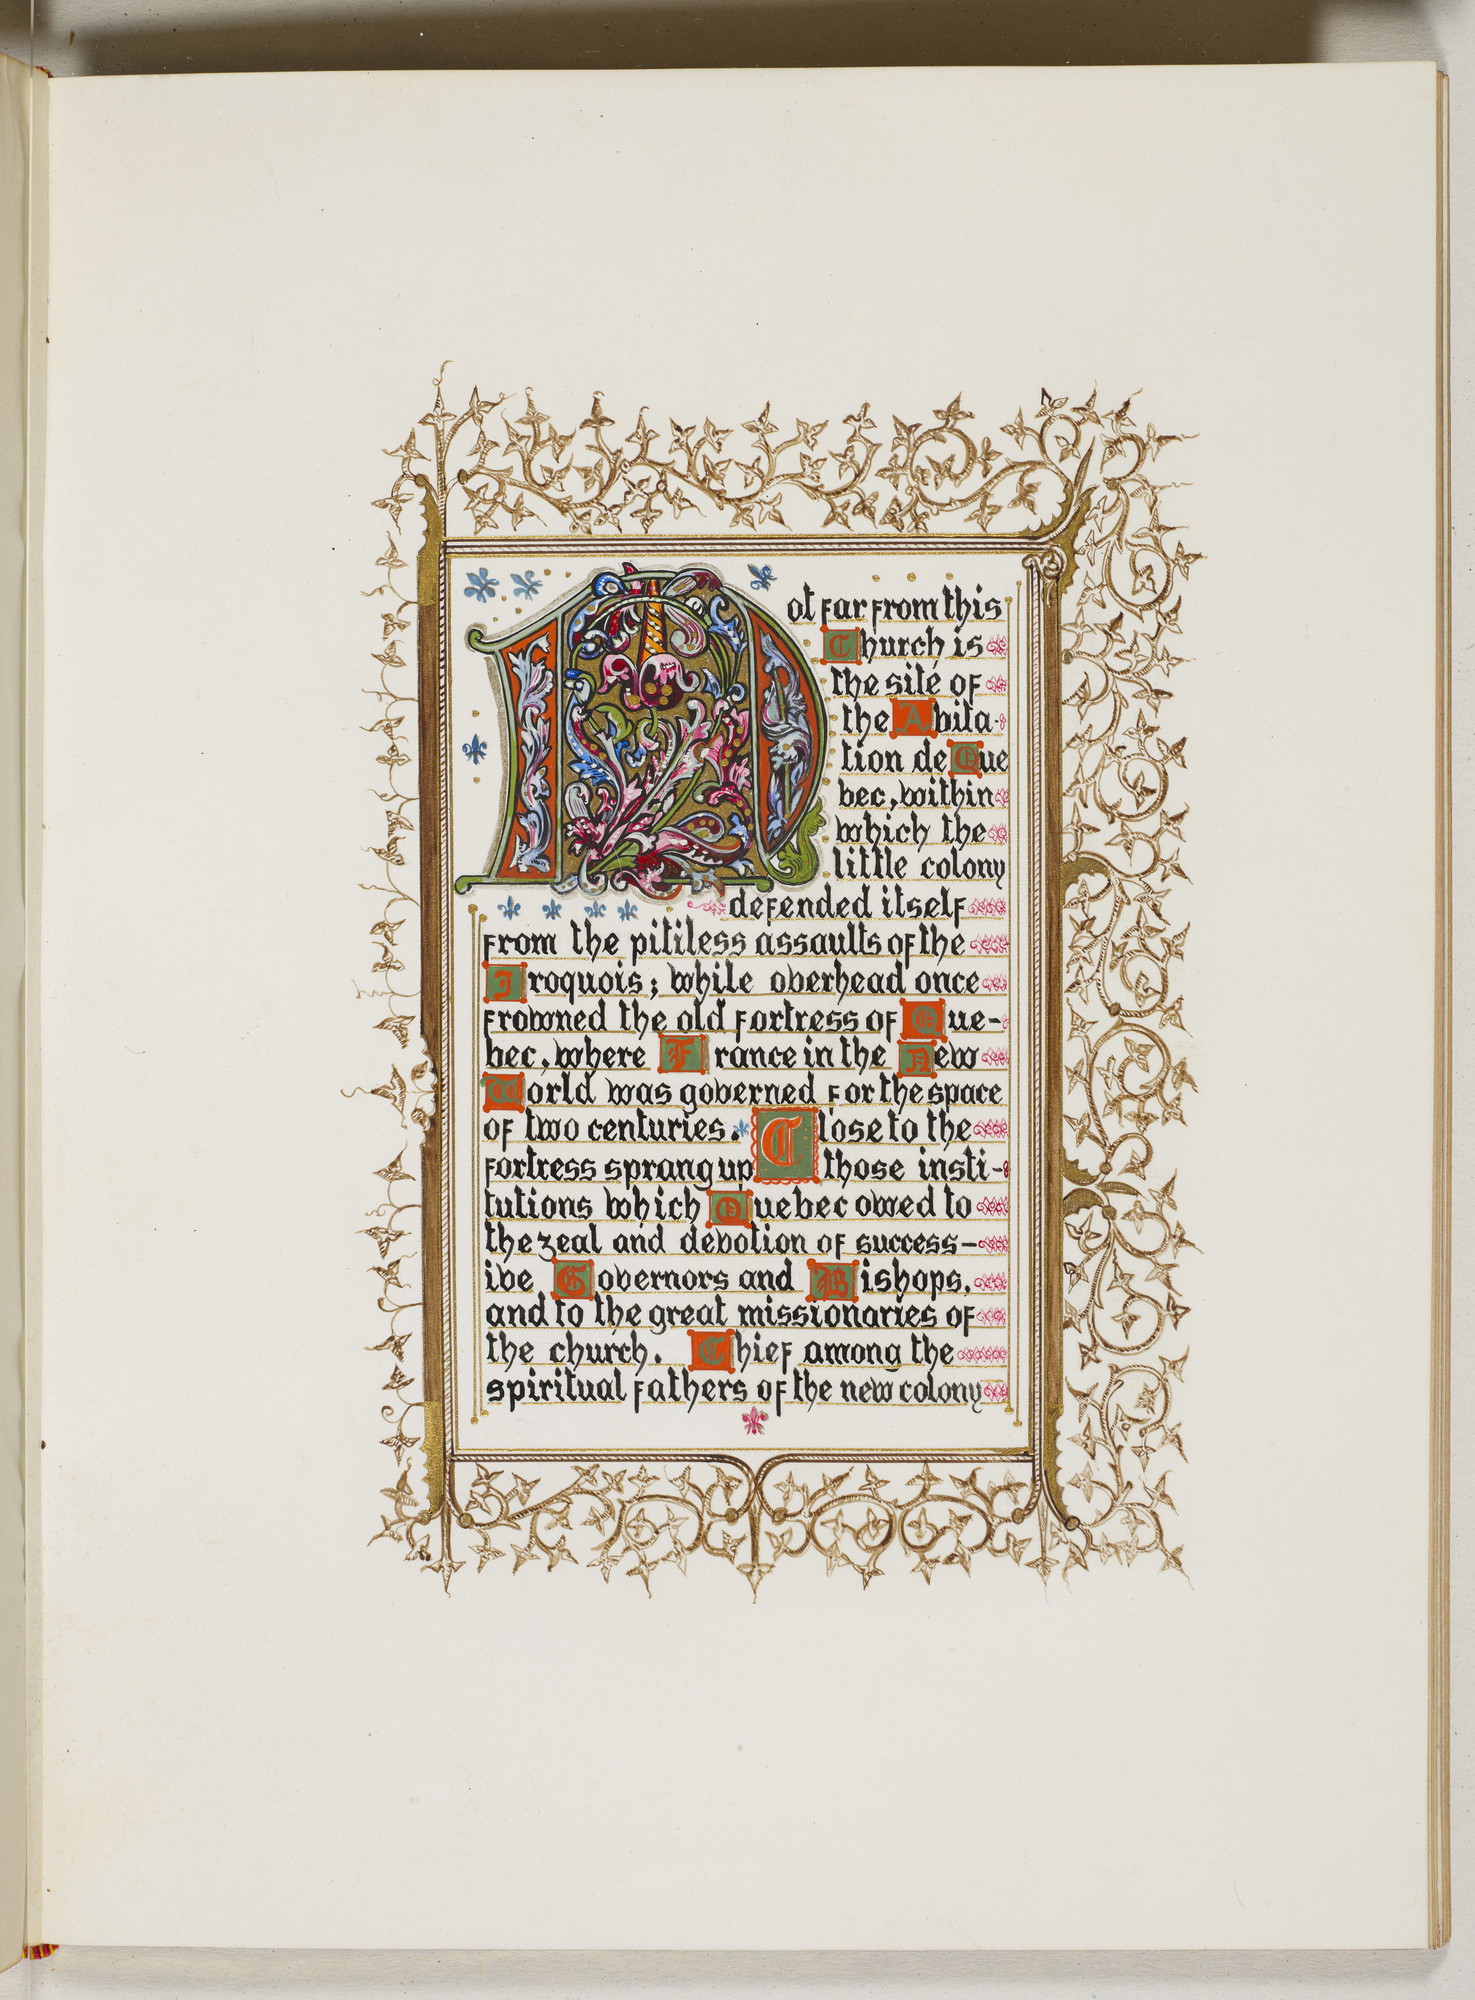 Not far from this
Church is
the site of
the Abita-
tion de Que
bec, within
which the
little colony
defended itself
from the pitiless assaults of the
Iroquois; while overhead once
frowned the old fortress of Que-
bec, where France in the New
World was governed for the space
of two centuries. Close to the
fortress sprang up those insti-
tutions which Quebec owed to
the zeal and devotion of success-
ive Governors and Bishops,
and to the great missionaries of
the church. Chief among the
spiritual fathers of the new colony